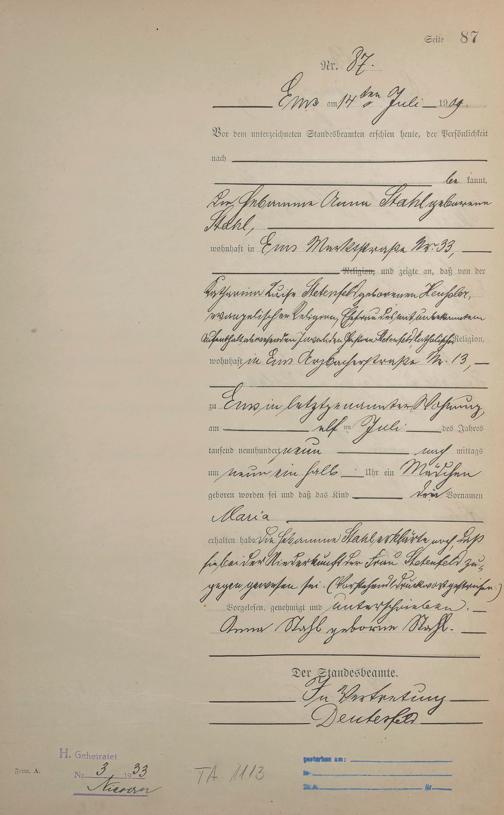 Seite 87
Nr. 87.
Ems am 14ten Juli 1909.
Vor dem unterzeichneten Standesbeamten erschien heute, der Persönlichkeit
nach
be kannt,
die Hebamme Anna Stahl geborene
Stahl,
wohnhaft in Ems Marktstraße Nr. 33,
Religion, und zeigte an, daß von der
Katharina Luise geborenen
evangelischer Religion, Ehefrau des mit unbekanntem
Aufenthalt abwesenden Religion,
wohnhaft in Ems Arzbacherstraße Nr. 13,
zu Ems in letztgenannter Wohnung,
am elf ten Juli des Jahres
tausend neunhundert neun nach mittags
um neun ein halb Uhr ein Mädchen
geboren worden sei und daß das Kind den Vornamen
Maria
erhalten habe. Die Hebamme Stahl erklärte noch daß
sie bei der Niederkunft der Frau zu-
gegen gewesen sei. (Vorstehend Druckwort gestrichen)
Vorgelesen, genehmigt und unterschrieben.
Anna Stahl geborne Stahl.
Der Standesbeamte.
In Vertretung
H. Geheiratet
Nr. 3 1933
Form. A.
TA 1113
gestorben am:
in
St.A. Nr